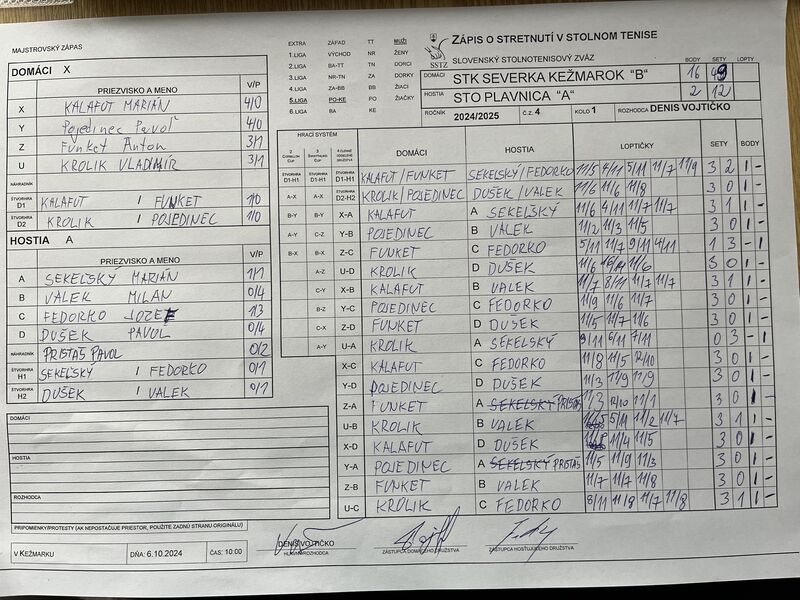 MAJSTROVSKÝ ZÁPAS
DOMÁCI X
PRIEZVISKO A MENO V/P
X KALAFUT MARIÁN 4/0
Y Pojedinec Pavol 4/0
Z Funket Anton 3/1
U KROLIK VLADIMÍR 3/1
NÁHRADNÍK
ŠTVORHRA D1 KALAFUT / FUNKET 1/0
ŠTVORHRA D2 KROLIK / POJEDINEC 1/0
HOSTIA A
PRIEZVISKO A MENO V/P
A SEKEĽSKÝ MARIÁN 1/1
B VALEK MILAN 0/4
C FEDORKO JOZEF 1/3
D DUŠEK PAVOL 0/4
NÁHRADNÍK PRISTÁŠ PAVOL 0/2
ŠTVORHRA H1 SEKEĽSKÝ / FEDORKO 0/1
ŠTVORHRA H2 DUŠEK / VALEK 0/1
DOMÁCI
HOSTIA
ROZHODCA
PRIPOMIENKY/PROTESTY (AK NEPOSTAČUJE PRIESTOR, POUŽITE ZADNÚ STRANU ORIGINÁLU)
V KEŽMARKU DŇA: 6.10.2024 ČAS: 10:00
EXTRA ZÁPAD TT MUŽI
1.LIGA VÝCHOD NR ŽENY
2.LIGA BA-TT TN DORCI
3.LIGA NR-TN ZA DORKY
4.LIGA ZA-BB BB ŽIACI
5.LIGA PO-KE PO ŽIAČKY
6.LIGA BA KE
SSTZ
ZÁPIS O STRETNUTÍ V STOLNOM TENISE
SLOVENSKÝ STOLNOTENISOVÝ ZVÄZ
BODY SETY LOPTY
DOMÁCI STK SEVERKA KEŽMAROK "B" 16 49
HOSTIA STO PLAVNICA "A" 2 12
ROČNÍK 2024/2025 Č.Z. 4 KOLO 1 ROZHODCA DENIS VOJTIČKO
HRACÍ SYSTÉM DOMÁCI HOSTIA LOPTIČKY SETY BODY
D1-H1 D1-H1 D1-H1 KALAFUT/FUNKET SEKEĽSKÝ/FEDORKO 11/5 4/11 5/11 11/7 11/9 3 2 1 -
A-X A-X D2-H2 KROLIK/POJEDINEC DUŠEK/VALEK 11/6 11/6 11/8 3 0 1 -
B-Y B-Y X-A KALAFUT A SEKEĽSKÝ 11/6 4/11 11/7 11/7 3 1 1 -
A-Y C-Z Y-B POJEDINEC B VALEK 11/2 11/3 11/5 3 0 1 -
B-X B-X Z-C FUNKET C FEDORKO 5/11 11/7 9/11 4/11 1 3 - 1
A-Z U-D KROLIK D DUŠEK 11/6 11/6 3 0 1 -
C-Y X-B KALAFUT B VALEK 11/7 8/11 11/7 11/7 3 1 1 -
B-Z Y-C POJEDINEC C FEDORKO 11/9 11/6 11/7 3 0 1 -
C-X Z-D FUNKET D DUSEK 11/5 11/7 11/6 3 0 1 -
A-Y U-A KROLIK A SEKEĽSKÝ 9/11 6/11 7/11 0 3 - 1
X-C KALAFUT C FEDORKO 11/8 11/5 12/10 3 0 1 -
Y-D POJEDINEC D DUŠEK 11/3 11/9 11/9 3 0 1 -
Z-A FUNKET A SEKEĽSKÝ PRISTÁŠ 11/3 12/10 11/1 3 0 1 -
U-B KROLIK B VALEK 5/11 11/2 11/7 3 1 1 -
X-D KALAFUT D DUŠEK 11/4 11/5 3 0 1 -
Y-A POJEDINEC A SEKEĽSKÝ PRISTÁŠ 11/5 11/9 11/3 3 0 1 -
Z-B FUNKET B VALEK 11/7 11/7 11/8 3 0 1 -
U-C KROLIK C FEDORKO 8/11 11/8 11/7 11/8 3 1 1 -
DENIS VOJTIČKO
HLAVNÝ ROZHODCA ZÁSTUPCA DOMÁCEHO DRUŽSTVA ZÁSTUPCA HOSŤUJÚCEHO DRUŽSTVA